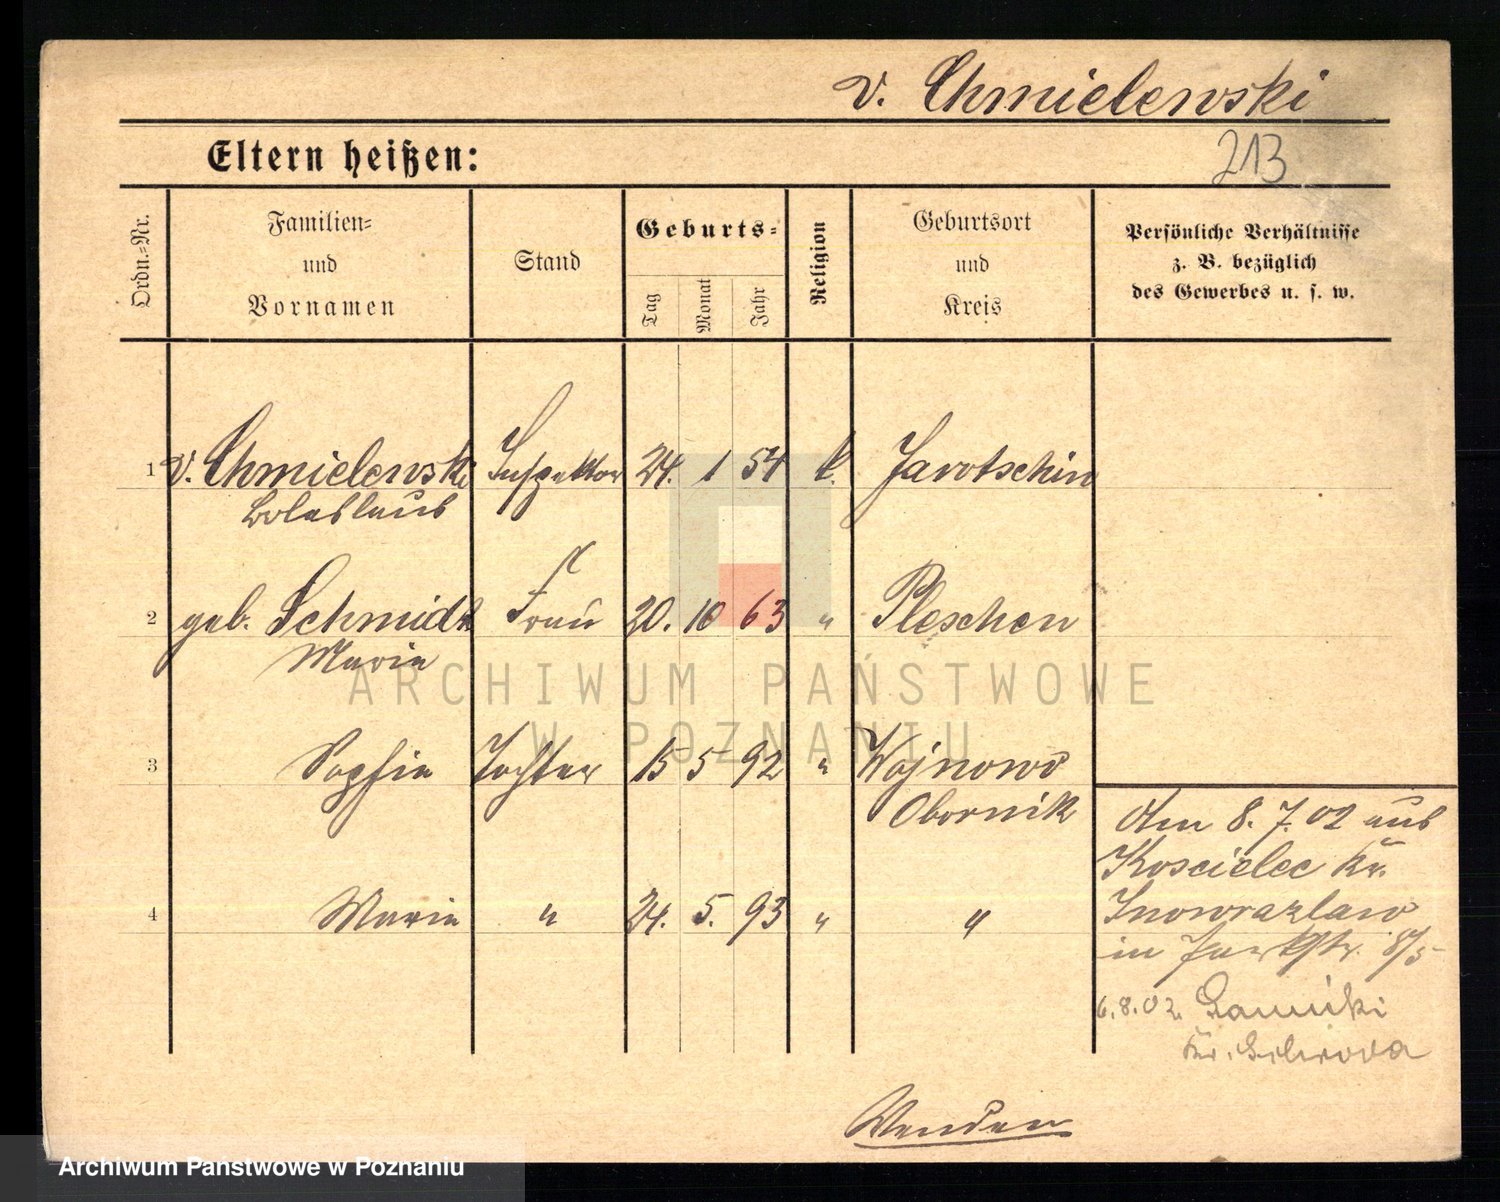 v. Chmielewski
213
Eltern heißen:
Ordn.-Nr.
Familien-
und
Vornamen
Stand
Geburts-
Tag
Monat
Jahr
Religion
Geburtsort
und
Kreis
Persönliche Verhältnisse
z. B. bezüglich
des Gewerbes u. s. w.
1 v. Chmielewski Inspektor 24. 1 54 k. Jarotschin
Boleslaus
2 geb. Schmidt Frau 20. 10 63 " Pleschen
Maria
3 Sophie Tochter 15 5 92 " Wojnowo
Obornik
4 Marie " 24. 5. 93 " "
Am 8. 7. 02 aus
Koscielec Kr.
Inowrazlaw
in 8/5
6.8.02.
Kr.
Wenden
ARCHIWUM PAŃSTWOWE
W POZNANIU
Archiwum Państwowe w Poznaniu